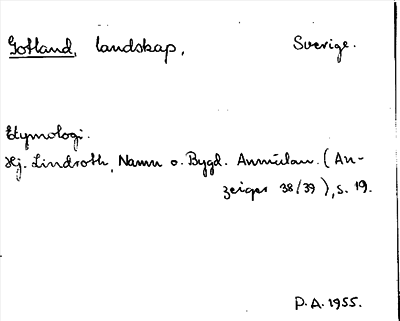 Gotland, landskap, Sverige.
Etymologi.
Hj. Lindroth, Namn o. Bygd. Anmälan. (An-
zeiger 38/39), s. 19.
P.A. 1955.